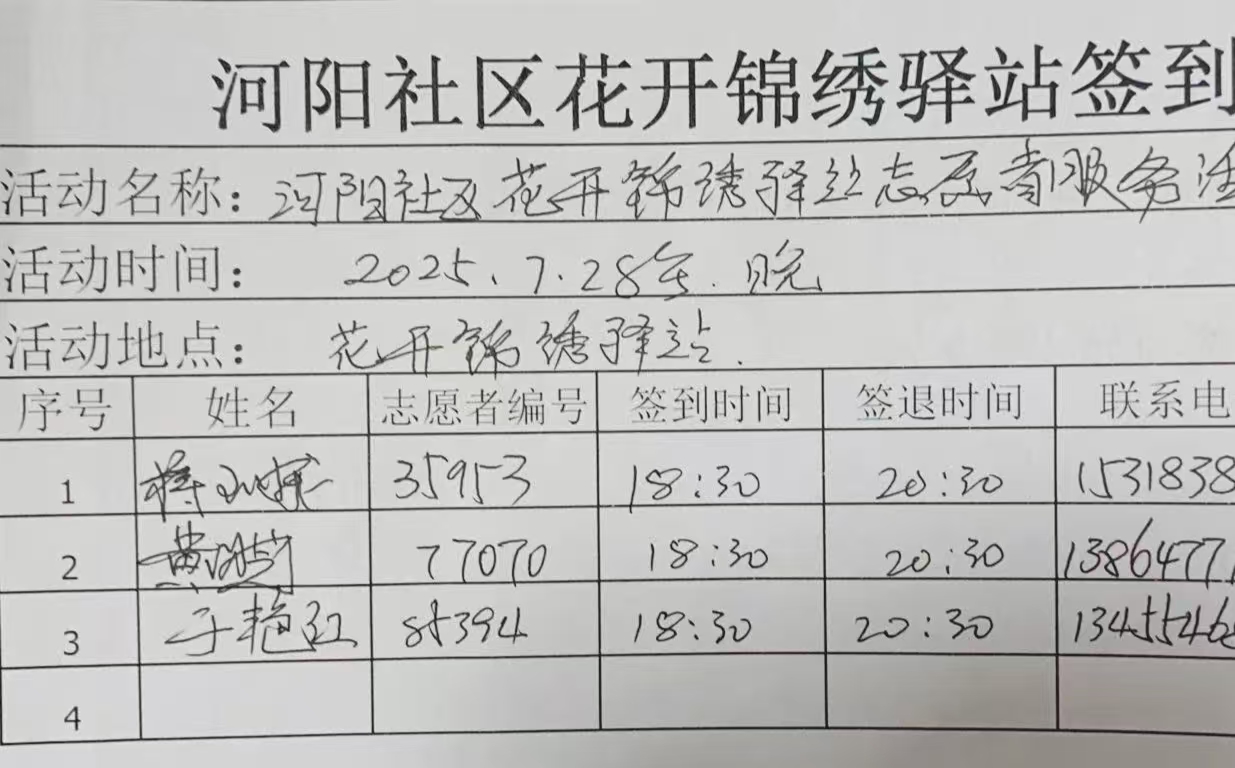 河阳社区花开锦绣驿站签到
活动名称：河阳社区花开锦绣驿站志愿者服务活
活动时间： 2025.7.28号.晚
活动地点： 花开锦绣驿站.
序号 姓名 志愿者编号 签到时间 签退时间 联系电
1 35953 18:30 20:30 1531838
2 黄 77070 18:30 20:30 1386477
3 于艳红 85394 18:30 20:30 1345546
4